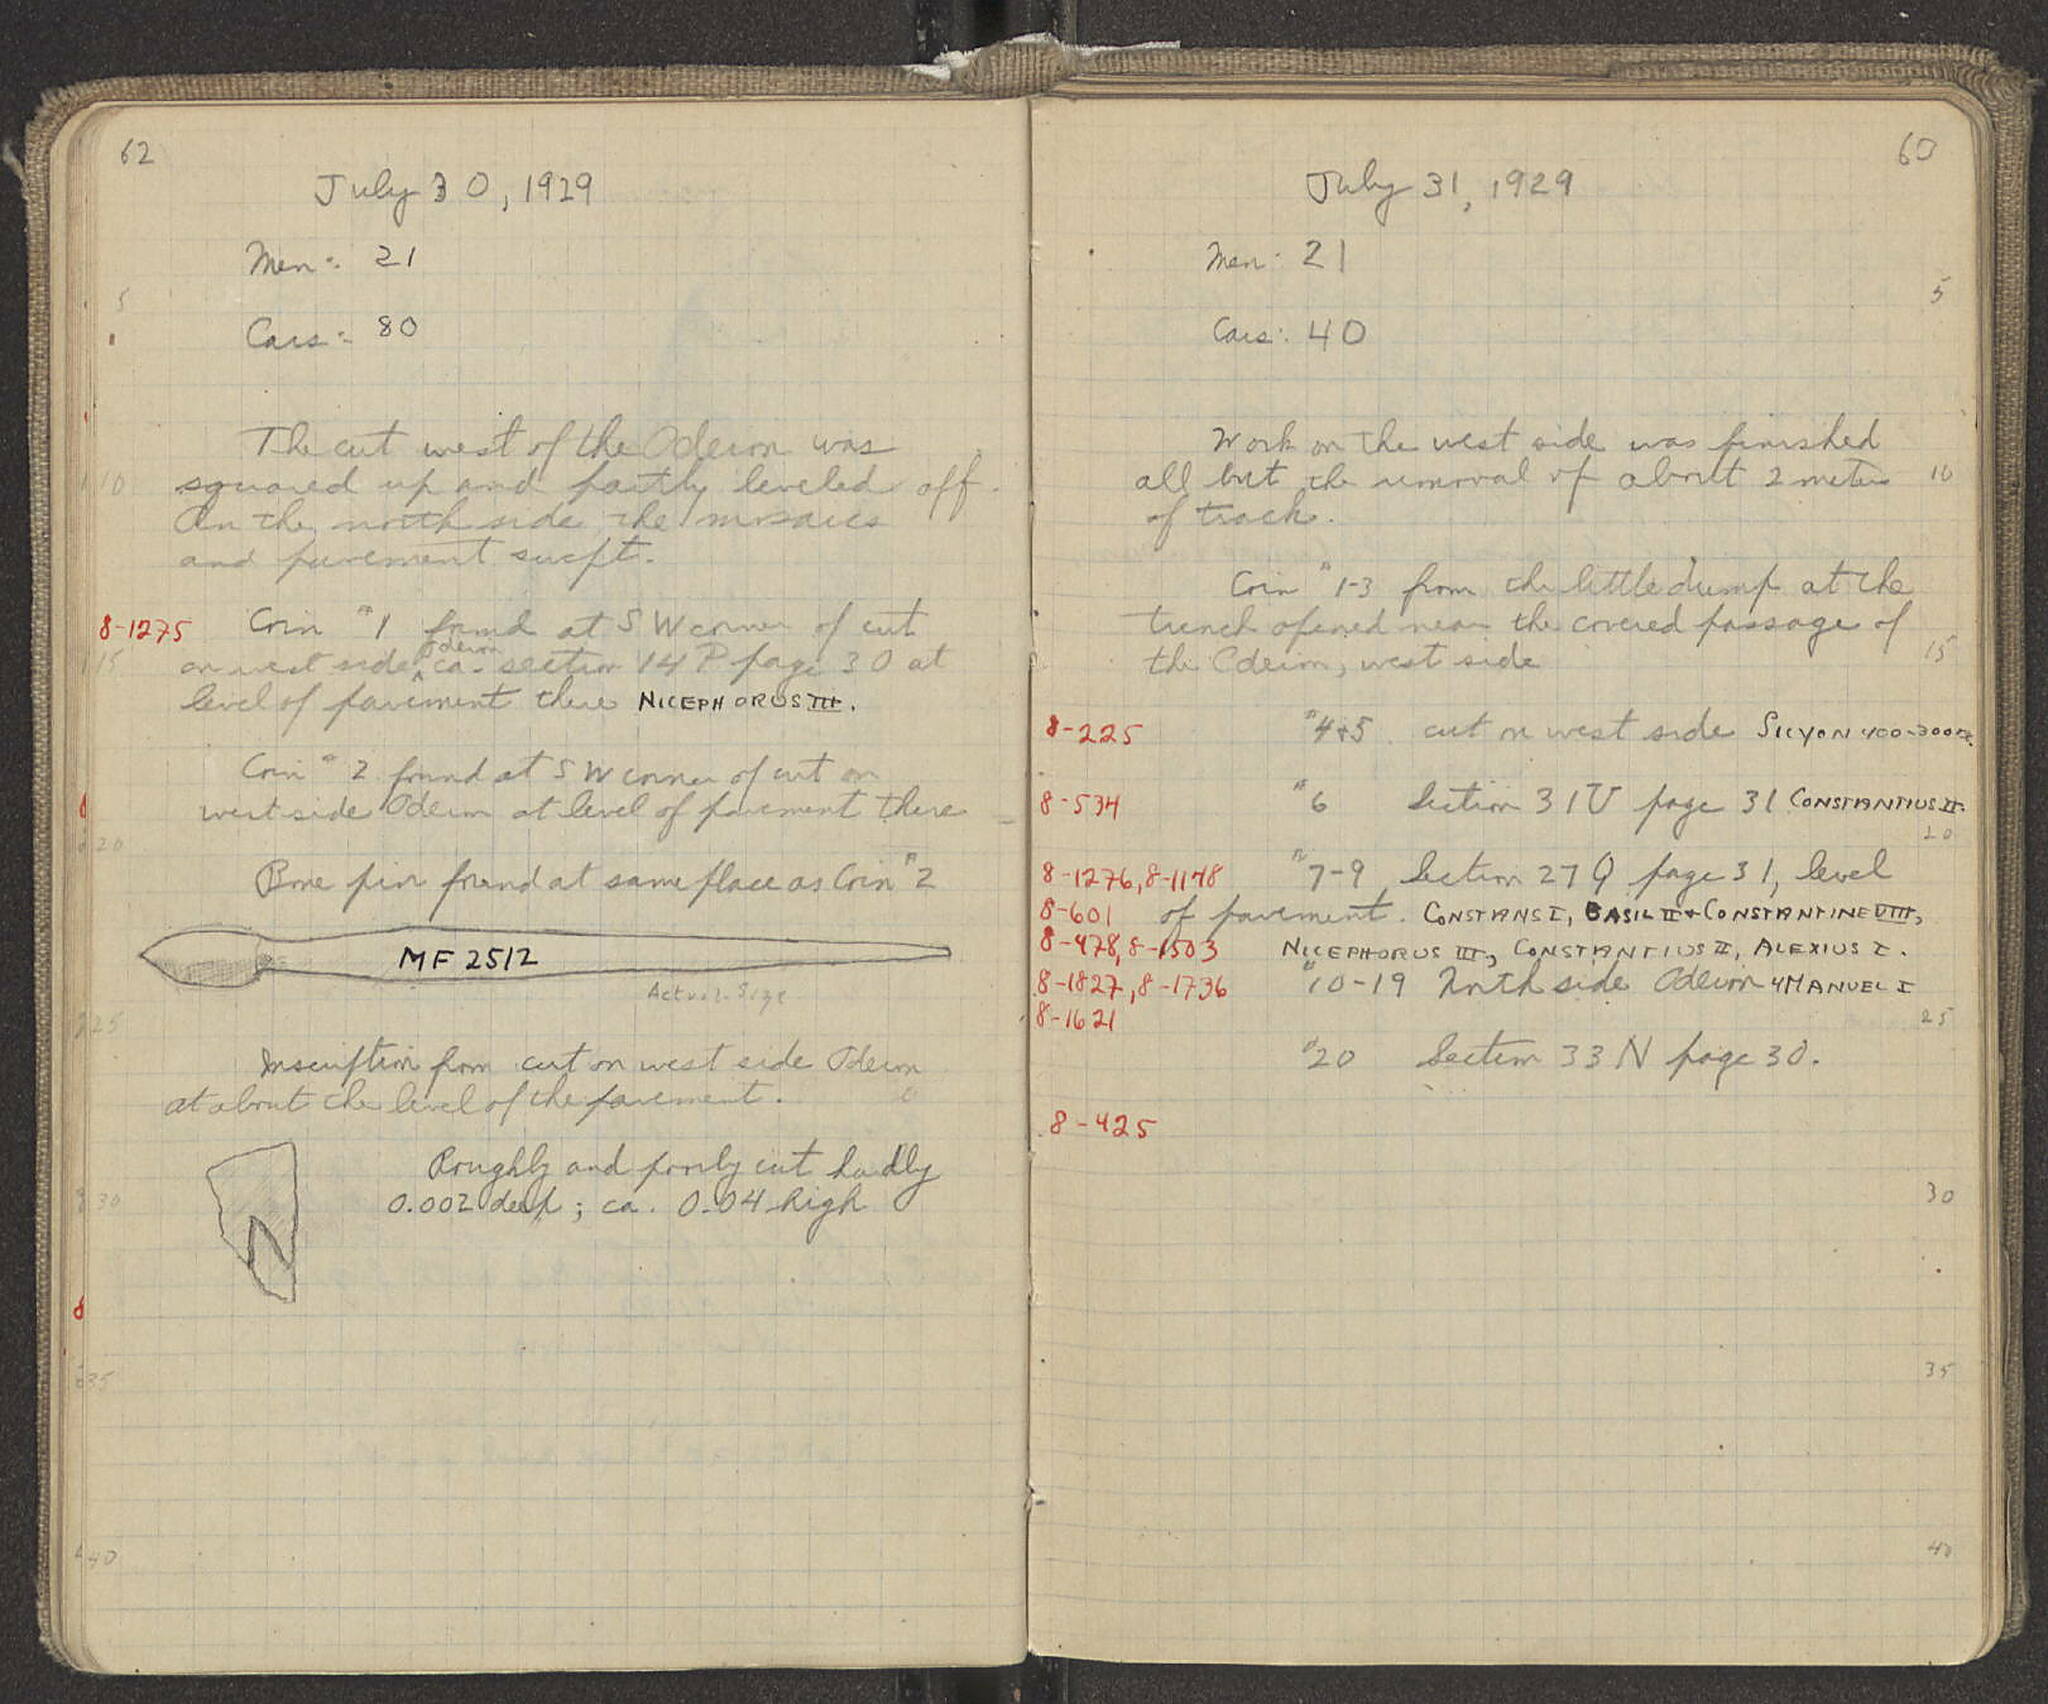 62
July 30, 1929
Men: 21
5
Cars: 80
The cut west of the Odeion was
10 squared up and partly leveled off.
On the north side the mosaics
and pavement swept.
8-1275 Coin #1 found at SW corner of cut
15 on west side Odeion ca. section 14 P page 30 at
level of pavement there NICEPHORUS III.
Coin #2 found at SW corner of cut on
west side Odeion at level of pavement there
20
Bone pin found at same place as Coin #2
MF 2512
Actual Size
25
Inscription from cut on west side Odeion
at about the level of the pavement.
Roughly and poorly cut hardly
30 0.002 deep; ca. 0.04 high
N
35
40
60
July 31, 1929
Men: 21
5
Cars: 40
Work on the west side was finished
all but the removal of about 2 meters 10
of track.
Coin #1-3 from the little dump at the
trench opened near the covered passage of
the Odeion, west side 15
8-225 #4+5 cut on west side SICYON 400-300
8-534 #6 Section 31U page 31 CONSTANTIUS II.
20
8-1276, 8-1148 #7-9 Section 27Q page 31, level
8-601 of pavement. CONSTANS I, BASIL II + CONSTANTINE VIII,
8-478, 8-1503 NICEPHORUS III, CONSTANTIUS II, ALEXIUS I.
8-1827, 8-1736 #10-19 North side Odeion 4 MANUEL I
8-1621 25
#20 Section 33 N page 30.
8-425
30
35
40